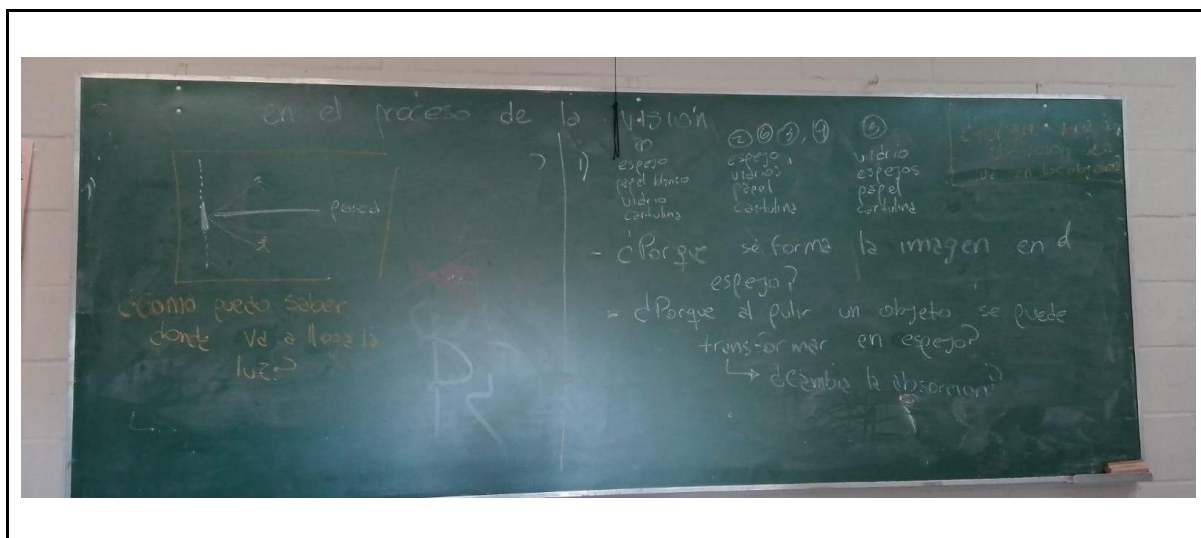 en el proceso de la visión
1)
pared
¿Como puedo saber
donde va a llegar la
luz?
1)
② ⑥ ③, ④
⑤
espejo
papel blanco
vidrio
cartulina
espejo,
vidrios
papel
cartulina
vidrio
espejos
papel
cartulina
- ¿Porque se forma la imagen en el
espejo?
- ¿Porque al pulir un objeto se puede
transformar en espejo?
↳ ¿Cambia la absorcion?